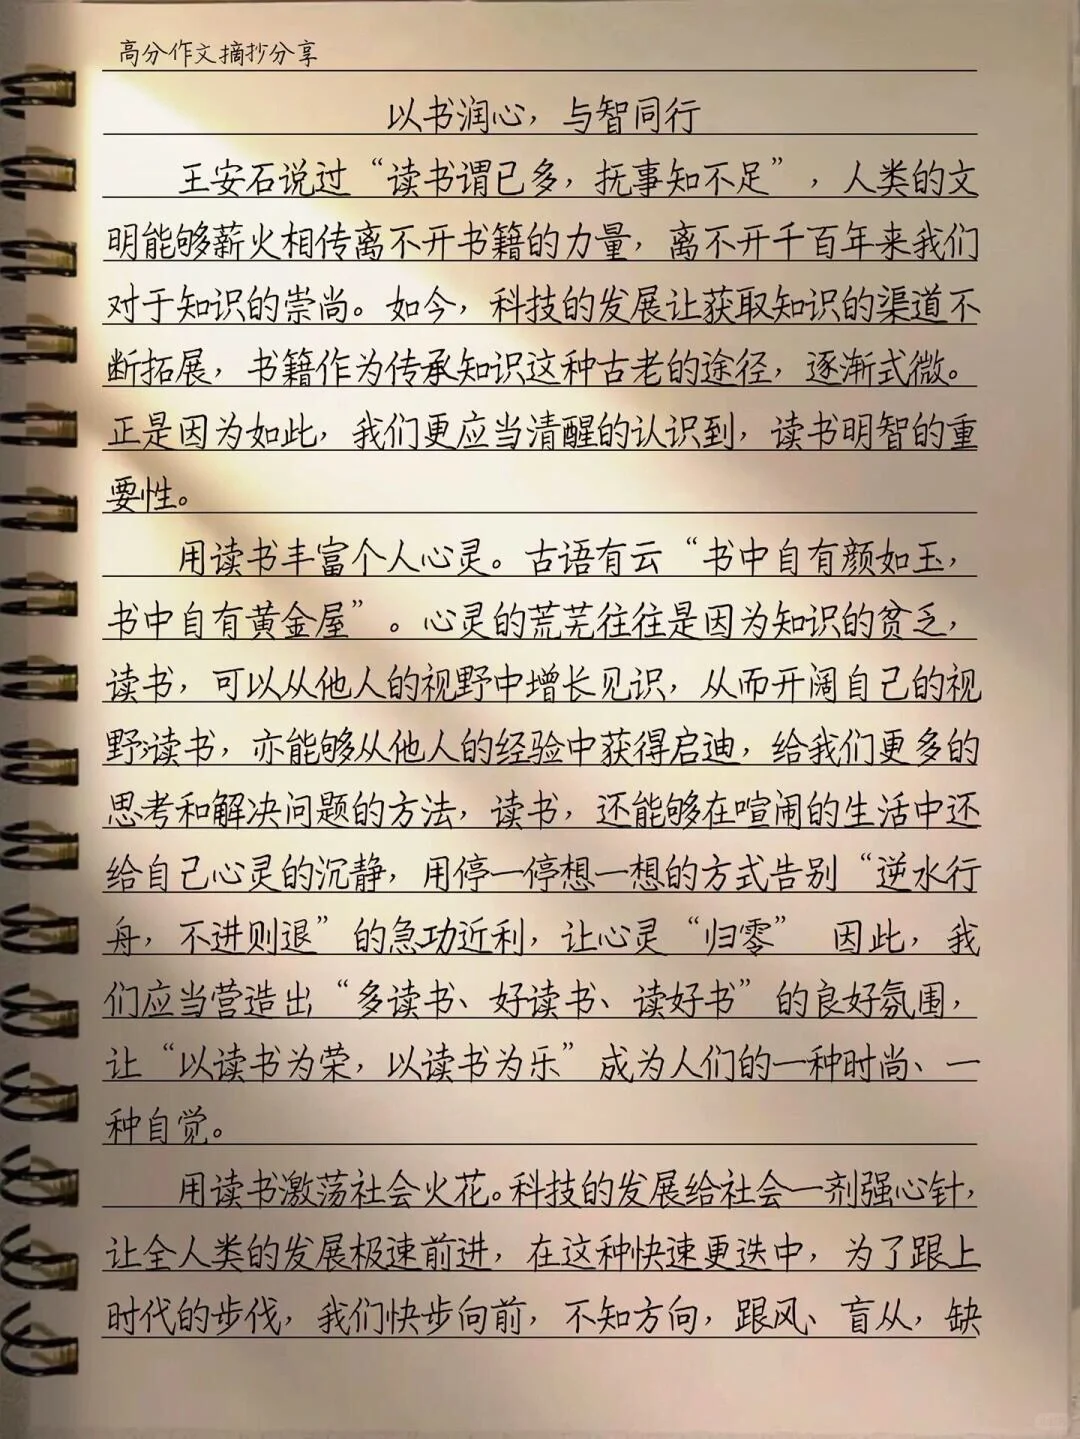 高分作文摘抄分享
以书润心，与智同行
王安石说过“读书谓已多，抚事知不足”，人类的文
明能够薪火相传离不开书籍的力量，离不开千百年来我们
对于知识的崇尚。如今，科技的发展让获取知识的渠道不
断拓展，书籍作为传承知识这种古老的途径，逐渐式微。
正是因为如此，我们更应当清醒的认识到，读书明智的重
要性。
用读书丰富个人心灵。古语有云“书中自有颜如玉，
书中自有黄金屋”。心灵的荒芜往往是因为知识的贫乏，
读书，可以从他人的视野中增长见识，从而开阔自己的视
野;读书，亦能够从他人的经验中获得启迪，给我们更多的
思考和解决问题的方法，读书，还能够在喧闹的生活中还
给自己心灵的沉静，用停一停想一想的方式告别“逆水行
舟，不进则退”的急功近利，让心灵“归零” 因此，我
们应当营造出“多读书、好读书、读好书”的良好氛围，
让“以读书为荣，以读书为乐”成为人们的一种时尚、一
种自觉。
用读书激荡社会火花。科技的发展给社会一剂强心针，
让全人类的发展极速前进，在这种快速更迭中，为了跟上
时代的步伐，我们快步向前，不知方向，跟风、盲从，缺